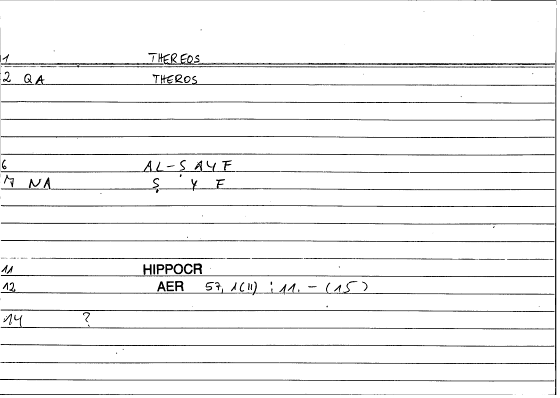 1 THEREOS
2 QA THEROS
6 AL-ṢAYF
7 NA Ṣ Y F
11 HIPPOCR
12 AER 57, 1(11) : 11. - (15)
14 ?